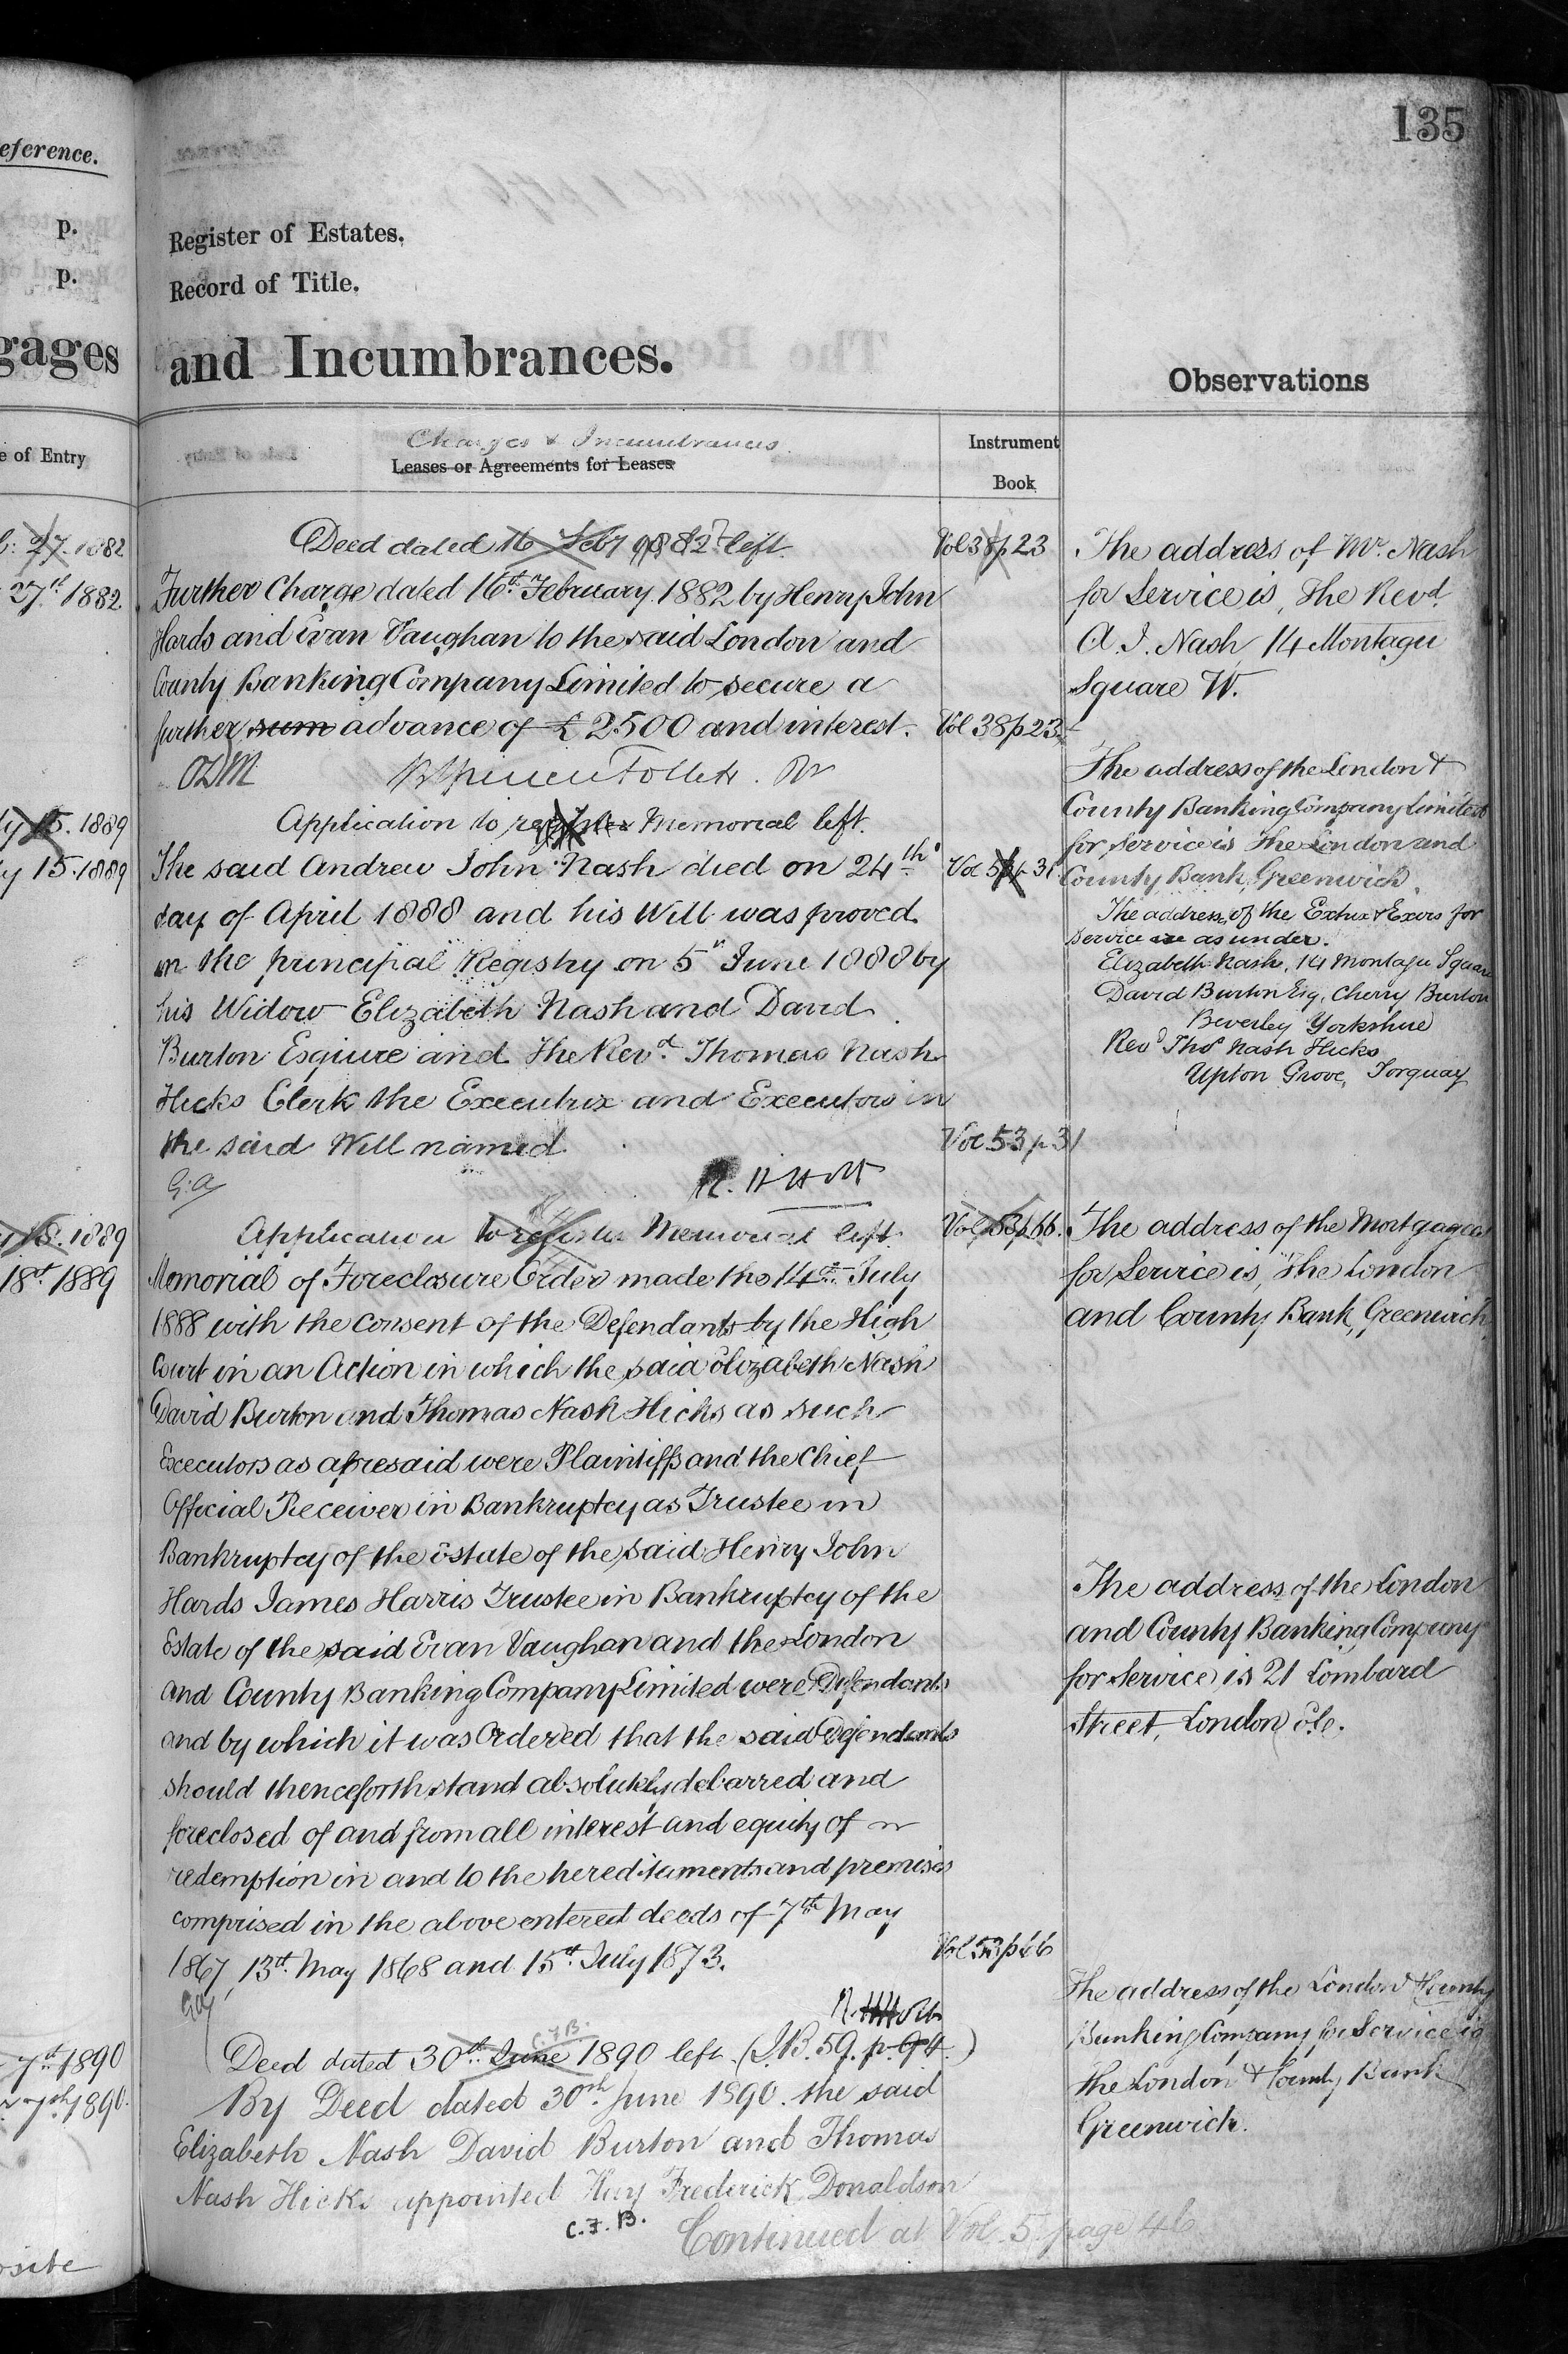 135
eference.
p.
p.
gages
e of Entry
27. 1882
27th 1882
15. 1889
y 15. 1889
18. 1889
18th 1889
7th 1890
7th 1890.
osite
Register of Estates.
Record of Title.
and Incumbrances.
Charges & Incumbrances
Leases or Agreements for Leases
Instrument
Book
Deed dated 16 Feby 1882 left
Vol 38 p 23
Further Charge dated 16th February 1882 by Henry John
Hards and Evan Vaughan to the said London and
County Banking Company Limited to secure a
further sum advance of £2500 and interest.
Vol 38 p 23
ODM
Application to register Memorial left.
The said Andrew John Nash died on 24th
Vol 53 p 31
day of April 1888 and his Will was proved
in the principal Registry on 5th June 1888 by
his Widow Elizabeth Nash and David
Burton Esquire and The Revd. Thomas Nash
Hicks Clerk the Executrix and Executors in
the said Will named
Vol 53 p 31
G.A
Application to register Memorial left.
Vol 53 p 66.
Memorial of Foreclosure Order made the 14th July
1888 with the consent of the Defendants by the High
Court in an Action in which the said Elizabeth Nash
David Burton and Thomas Nash Hicks as such
Executors as aforesaid were Plaintiffs and the Chief
Official Receiver in Bankruptcy as Trustee in
Bankruptcy of the Estate of the said Henry John
Hards James Harris Trustee in Bankruptcy of the
Estate of the said Evan Vaughan and the London
and County Banking Company Limited were Defendants
and by which it was Ordered that the said Defendants
should thenceforth stand absolutely debarred and
foreclosed of and from all interest and equity of
redemption in and to the hereditaments and premises
comprised in the above entered deeds of 7th May
1867, 13th May 1868 and 15th July 1873.
Vol 53 p 66
C.F.B.
Deed dated 30th June 1890 left (I.B. 59. p. 94.)
By Deed dated 30th June 1890 the said
Elizabeth Nash David Burton and Thomas
Nash Hicks appointed Hay Frederick Donaldson
C.F.B.
Continued at Vol. 5 page 46
Observations
The address of Mr. Nash
for Service is, The Revd.
A. J. Nash, 14 Montagu
Square W.
The address of the London &
County Banking Company Limited
for service is The London and
County Bank, Greenwich.
The address of the Extrix & Exors for
service are as under.
Elizabeth Nash, 14 Montagu Square
David Burton Esq, Cherry Burton
Beverley Yorkshire
Revd Thos Nash Hicks
Upton Grove, Torquay
The address of the Mortgagees
for Service is, The London
and County Bank, Greenwich.
The address of the London
and County Banking Company
for Service is 21 Lombard
Street, London E.C.
The address of the London & County
Banking Company for Service is
The London & County Bank
Greenwich.